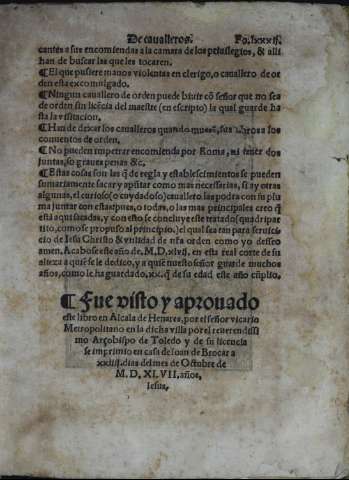 De caualleros. Fo.lxxxij.
cantes a sus encomiendas a la camara de los preuilegios, & alli
han de buscar las que les tocaren.
¶ El que pusiere manos violentas en clerigo, o cauallero de or
den esta excomulgado.
¶ Ningun cauallero de orden puede biuir cō señor que no sea
de orden sin licēcia del maestre (en escripto) la qual guarde ha
sta la visitacion.
¶ Han de dexar los caualleros quando muerē, sus libros a los
conuentos de orden.
¶ No pueden impetrar encomienda por Roma, ni tener dos
juntas, so graues penas &c.
¶ Estas cosas son las q̄ de regla y establescimientos se pueden
sumariamente sacar y apūtar como mas necessarias, si ay otras
algunas, el curioso (o cuydadoso) cauallero, las podra con su plu
ma juntar con estas
aqui sacadas, y con esto se concluye este tratado (quadripar
tito, como se propuso al principio.) el qual sea tan para serui
cio de Iesu Christo & vtilidad de nr̄a orden como yo desseo
amen, Acabose este año de, M.D.xlvj. en esta real corte de su
alteza a quiē se dedico, y a quiē nuestro señor guarde muchos
años, como le ha guardado, xx. q̄ de su edad este año cūplio.
¶ Fue visto y aprouado
este libro en Alcala de Henares, por el señor vicario
Metropolitano en la dicha villa por el reuerendissi
mo Arçobispo de Toledo y de su licencia
se imprimio en casa de Ioan de Brocar a
xxiij. dias del mes de Octubre de
M. D. XL VII. años,
Iesus,